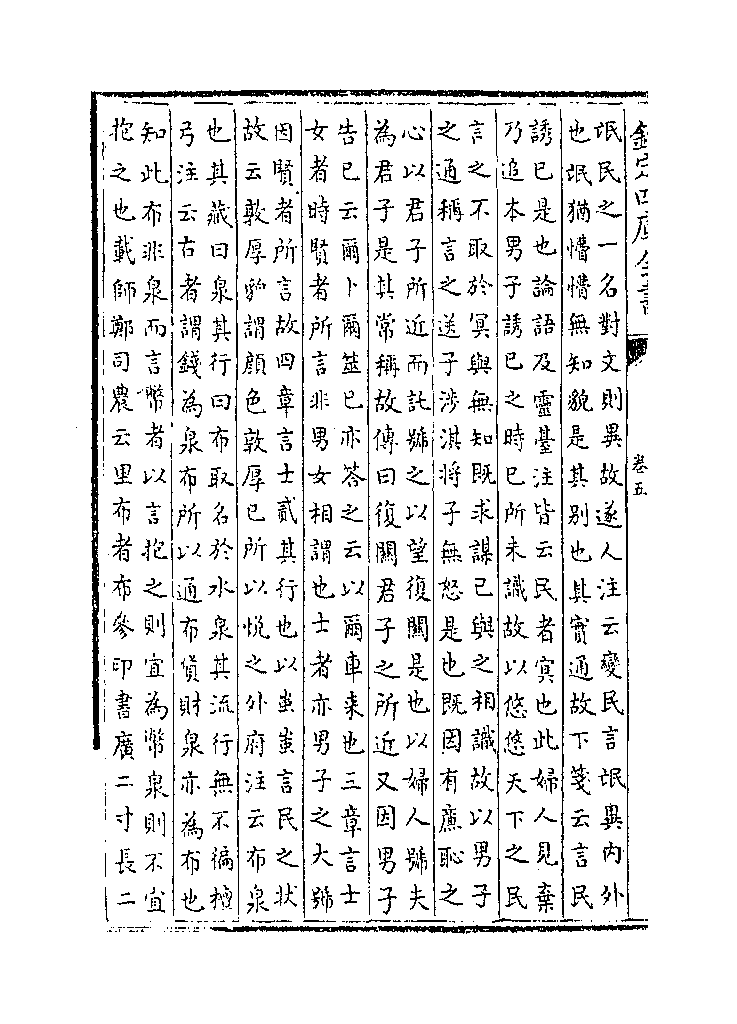 欽定四庫全書
卷五
氓民之一名對文則異故遂人注云變民言氓異内外
也氓猶懵懵無知貌是其别也其實通故下箋云言民
誘已是也論語及靈臺注皆云民者㝠也此婦人見棄
乃追本男子誘已之時已所未識故以悠悠天下之民
言之不取於冥與無知既求謀已與之相識故以男子
之通稱言之送子涉淇將子無怒是也既因有廉恥之
心以君子所近而託號之以望復關是也以婦人號夫
為君子是其常稱故傳曰復關君子之所近又因男子
告已云爾卜爾筮已亦答之云以爾車来也三章言士
女者時賢者所言非男女相謂也士者亦男子之大號
因賢者所言故四章言士貳其行也以蚩蚩言民之状
故云敦厚貌謂顔色敦厚已所以悦之外府注云布泉
也其藏曰泉其行曰布取名於水泉其流行無不徧檀
弓注云古者謂錢為泉布所以通布貨財泉亦為布也
知此布非泉而言幣者以言抱之則宜為幣泉則不宜
抱之也載師鄭司農云里布者布參印書廣二寸長二